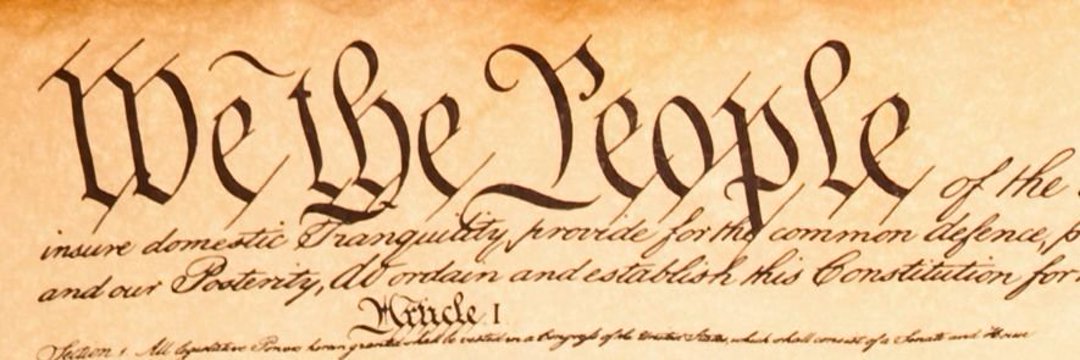 We the People of the
insure domestic Tranquility, provide for the common defence,
and our Posterity, do ordain and establish this Constitution for
Article. I
Section 1. All legislative Powers herein granted shall be vested in a Congress of the United States, which shall consist of a Senate and House